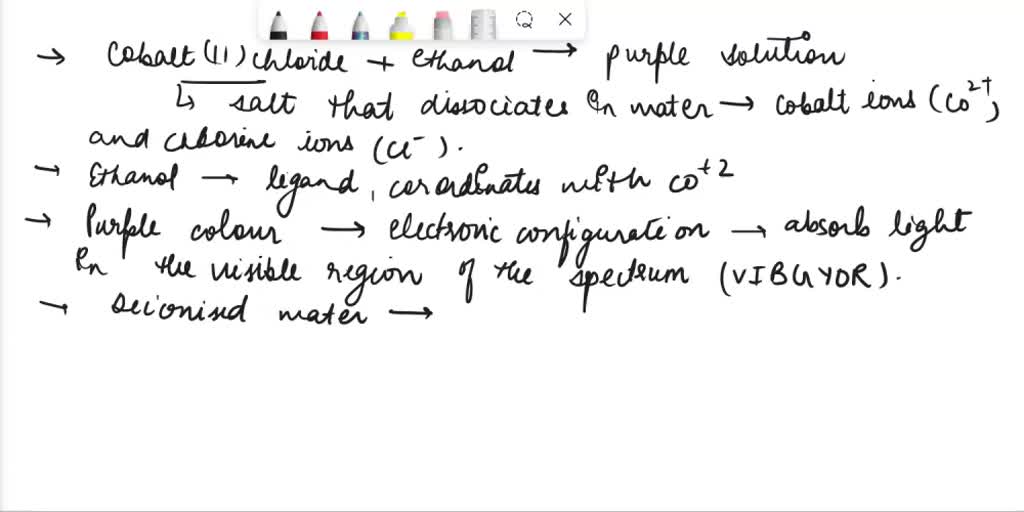 → Cobalt (11) chloride + ethanol → purple solution
↳ salt that dissociates in water → cobalt ions (Co²⁺)
and chlorine ions (Cl⁻).
→ Ethanol → ligand, coordinates with Co⁺²
→ Purple colour → electronic configuration → absorb light
in the visible region of the spectrum (VIBGYOR).
→ Deionised water →